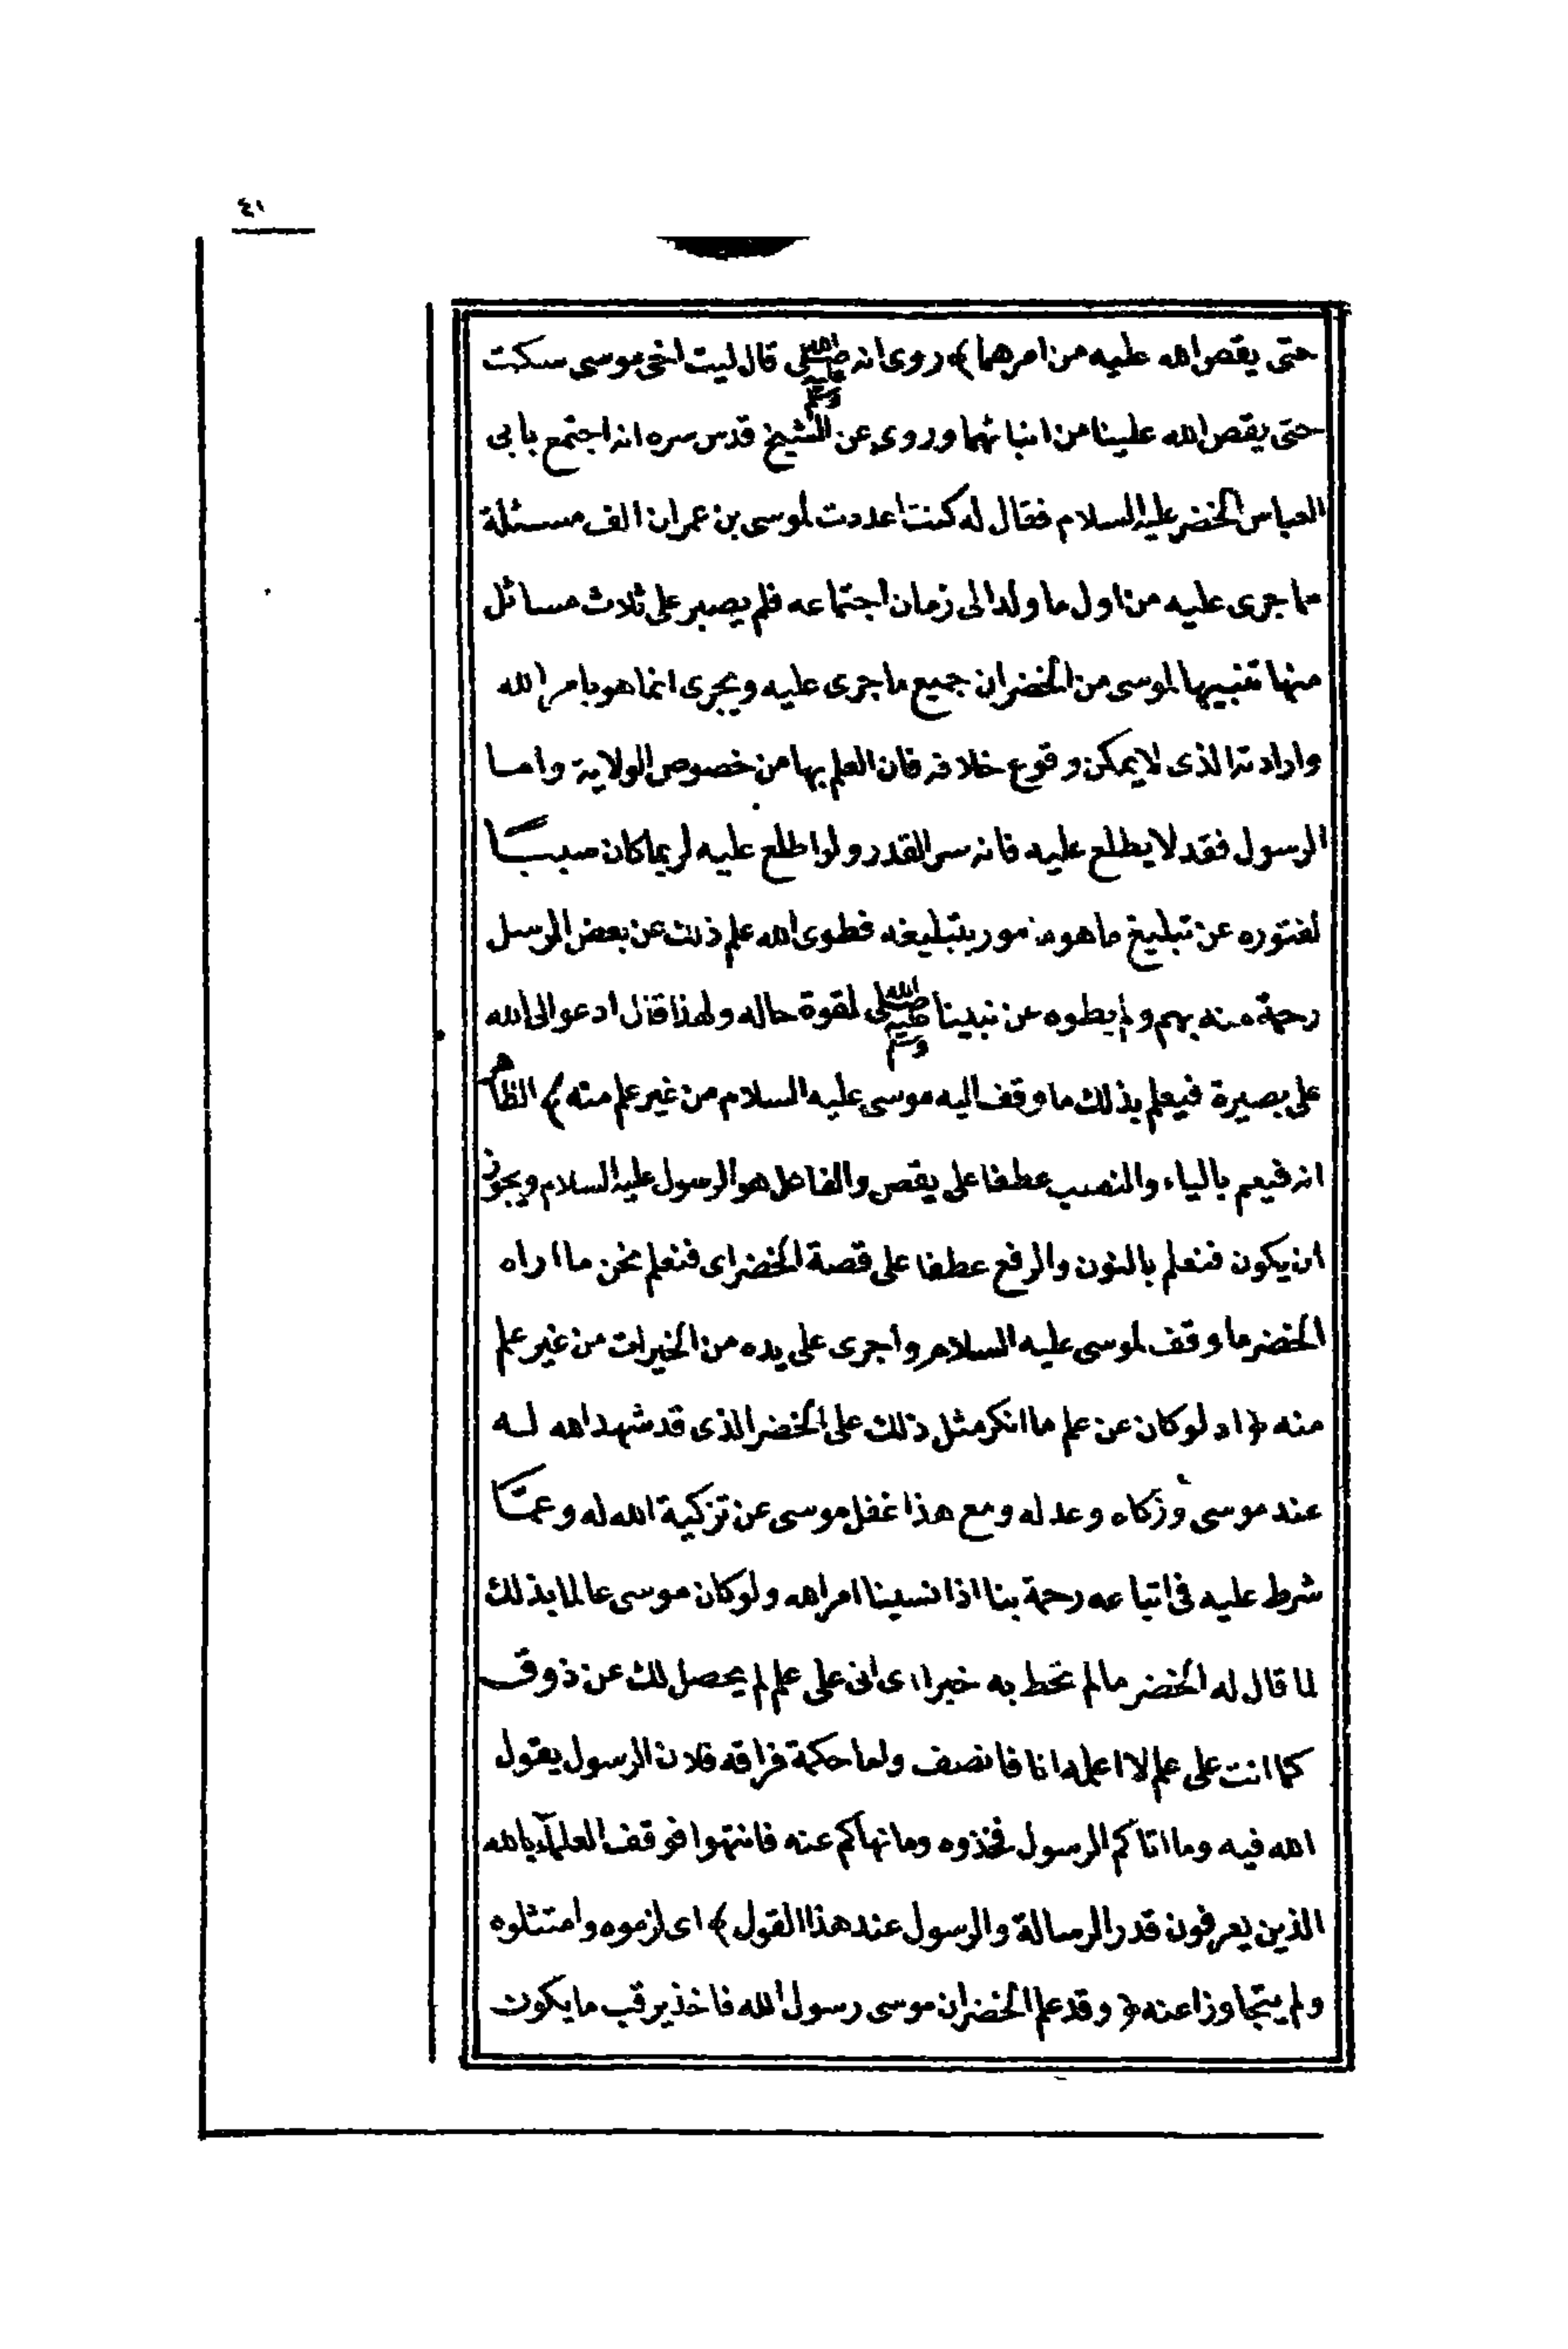 ٤١
حتى يقص الله عليه من امرهما﴾ روى انه صلى الله عليه وسلم قال ليت اخى موسى سكت
حتى يقص الله علينا من انبائهما وروى عن الشيخ قدس سره انه اجتمع بابى
العباس الخضر عليه السلام فقال له كنت اعددت لموسى بن عمران الف مسئلة
مما جرى عليه من اول ما ولد الى زمان اجتماعه فلم يصبر على ثلاث مسائل
منها تنبيها لموسى من الخضر ان جميع ما جرى عليه ويجرى انما هو بامر الله
وارادته الذى لا يمكن وقوع خلافه فان العلم بها من خصوص الولاية واما
الرسول فقد لا يطلع عليه فانه سر القدر ولو اطلع عليه لربما كان سببا
لفتوره عن تبليغ ما هو مأمور بتبليغه فطوى الله علم ذلك عن بعض الرسل
رحمة منه بهم ولم يطوه عن نبينا صلى الله عليه وسلم لقوة حاله ولهذا قال ادعو الى الله
على بصيرة فيعلم بذلك ما وقف اليه موسى عليه السلام من غير علم منه﴾ الظاهر
انه فيعم بالياء والنصب عطفا على يقص والفاعل هو الرسول عليه السلام ويجوز
ان يكون فنعلم بالنون والرفع عطفا على قصة الخضر اى فنعلم نحن ما اراه
الخضر ما وقف لموسى عليه السلام واجرى على يده من الخيرات من غير علم
منه ﴿اد لو كان عن علم ما انكر مثل ذلك على الخضر الذى قد شهد الله له
عند موسى وزكاه وعدله ومع هذا غفل موسى عن تزكية الله له وعمّا
شرط عليه فى اتباعه رحمة بنا اذا نسينا امر الله ولو كان موسى عالما بذلك
لما قال له الخضر ما لم تحط به خبرا اى انى على علم لم يحصل لك عن ذوق
كما انت على علم لا اعلمه انا فانصف واما حكمة فراقه فلان الرسول يقول
الله فيه وما اتاكم الرسول فخذوه وما نهاكم عنه فانتهوا فوقف العلمآء بالله
الذين يعرفون قدر الرسالة والرسول عند هذا القول﴾ اى لزموه وامتثلوه
ولم يتجاوزا عنه ﴿وقد علم الخضر ان موسى رسول الله فاخذ يرقب ما يكون